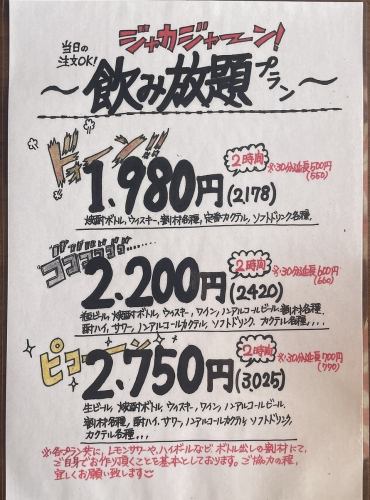 ジャカジャーン!
当日の
注文OK!
〜飲み放題プラン〜
ドドーン!!
2時間
※30分延長500円
(550)
1.980円(2178)
焼酎ボトル,ウィスキー,割材各種,定番カクテル,ソフトドリンク各種,
ゴゴゴゴゴゴ......
2時間
※30分延長600円
(660)
2.200円(2420)
瓶ビール,焼酎ボトル,ウィスキー,ワイン,ノンアルコールビール,割材各種,
酎ハイ,サワー,ノンアルコールカクテル,ソフトドリンク,カクテル各種,,,
ピコーーン
2時間
※30分延長700円
(770)
2.750円(3025)
生ビール,焼酎ボトル,ウィスキー,ワイン,ノンアルコールビール,
割材各種,酎ハイ,サワー,ノンアルコールカクテル,ソフトドリンク,
カクテル各種,,,
※各プラン共に,レモンサワーや,ハイボールなど ボトル出しの割材にて,
ご自身でお作り頂くことを基本としております。ご協力の程,
宜しくお願い致します